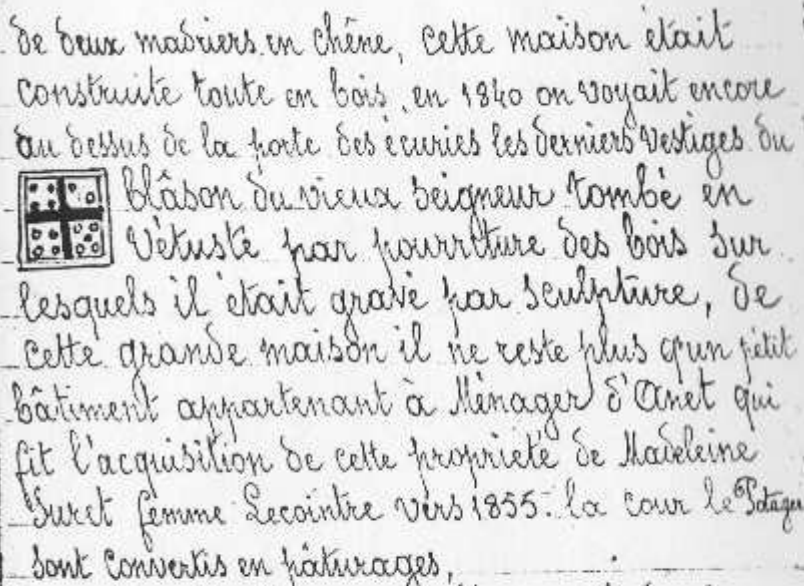 de deux madriers en chêne, cette maison était
construite toute en bois, en 1840 on voyait encore
au dessus de la porte des écuries les derniers vestiges du
blâson du vieux seigneur tombé en
vétusté par pourriture des bois sur
lesquels il était gravé par sculpture, de
cette grande maison il ne reste plus q'un petit
bâtiment appartenant à Ménager d'Anet qui
fit l'acquisition de cette propriété de Madeleine
Furet femme Lecointre vers 1855. la cour le Potager
sont convertis en pâturages,